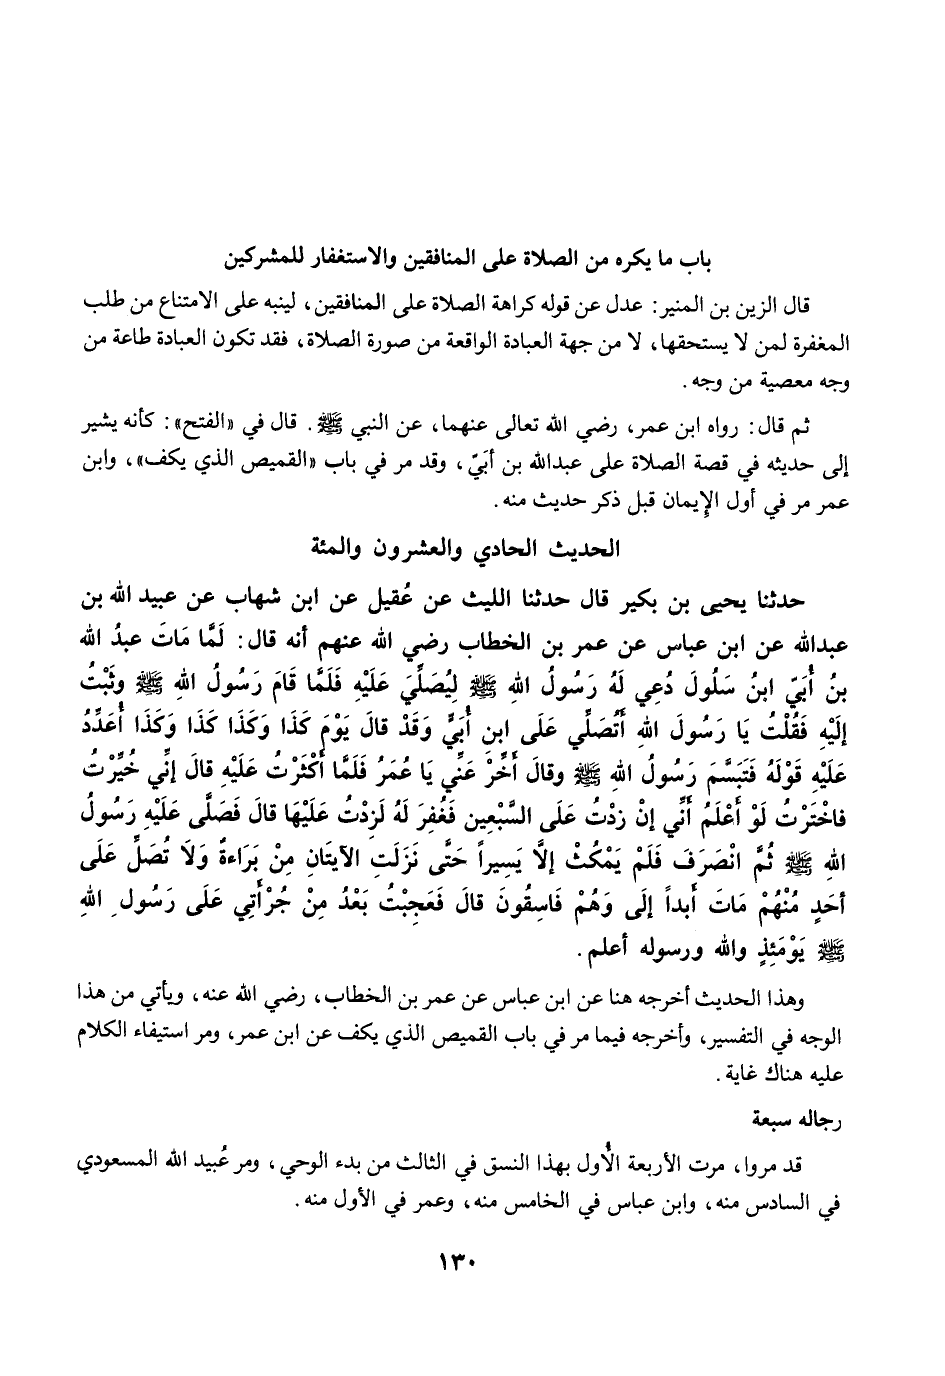 باب ما يكره من الصلاة على المنافقين والاستغفار للمشركين
قال الزين بن المنير: عدل عن قوله كراهة الصلاة على المنافقين، لينبه على الامتناع من طلب
المغفرة لمن لا يستحقها، لا من جهة العبادة الواقعة من صورة الصلاة، فقد تكون العبادة طاعة من
وجه معصية من وجه.
ثم قال: رواه ابن عمر، رضي الله تعالى عنهما، عن النبي ﷺ. قال في «الفتح»: كأنه يشير
إلى حديثه في قصة الصلاة على عبدالله بن أُبَيّ، وقد مر في باب «القميص الذي يكف»، وابن
عمر مر في أول الإِيمان قبل ذكر حديث منه.
الحديث الحادي والعشرون والمئة
حدثنا يحيى بن بكير قال حدثنا الليث عن عُقيل عن ابن شهاب عن عبيد الله بن
عبدالله عن ابن عباس عن عمر بن الخطاب رضي الله عنهم أنه قال: لَمَّا مَاتَ عبدُ الله
بنُ أُبَيّ ابنُ سَلُولَ دُعِي لَهُ رَسُولُ اللهِ ﷺ لِيُصَلِّيَ عَلَيْهِ فَلَمَّا قَامَ رَسُولُ اللهِ ﷺ وثَبْتُ
إلَيْهِ فَقُلْتُ يَا رَسُولَ اللهِ أَتُصَلِّي عَلَى ابنِ أُبَيٍّ وَقَدْ قالَ يَوْمَ كَذَا وَكَذَا كَذَا وَكَذَا أُعَدِّدُ
عَلَيْهِ قَوْلَهُ فَتَبَسَّمَ رَسُولُ اللهِ ﷺ وقالَ أَخِّرْ عَنِّي يا عُمَرُ فَلَمَّا أَكْثَرْتُ عَلَيْهِ قالَ إنِّي خُيِّرْتُ
فاخْتَرْتُ لَوْ أَعْلَمُ أَنِّي إنْ زِدْتُ عَلَى السَّبْعِين فَغُفِرَ لَهُ لَزِدْتُ عَلَيْهَا قالَ فَصَلَّى عَلَيْهِ رَسُولُ
اللهِ ﷺ ثُمَّ انْصَرَفَ فَلَمْ يَمْكُثْ إلَّا يَسِيراً حَتَّى نَزَلَتِ الآيتَانِ مِنْ بَرَاءةٌ وَلَا تُصَلِّ عَلَى
أحَدٍ مُنْهُمْ مَاتَ أَبداً إلَى وَهُمْ فَاسِقُونَ قالَ فَعَجِبْتُ بَعْدُ مِنْ جُرْأَتِي عَلَى رَسُولِ اللهِ
ﷺ يَوْمَئِذٍ والله ورسوله أعلم.
وهذا الحديث أخرجه هنا عن ابن عباس عن عمر بن الخطاب، رضي الله عنه، ويأتي من هذا
الوجه في التفسير، وأخرجه فيما مر في باب القميص الذي يكف عن ابن عمر، ومر استيفاء الكلام
عليه هناك غاية.
رجاله سبعة
قد مروا، مرت الأربعة الأُول بهذا النسق في الثالث من بدء الوحي، ومر عُبيد الله المسعودي
في السادس منه، وابن عباس في الخامس منه، وعمر في الأول منه.
١٣٠